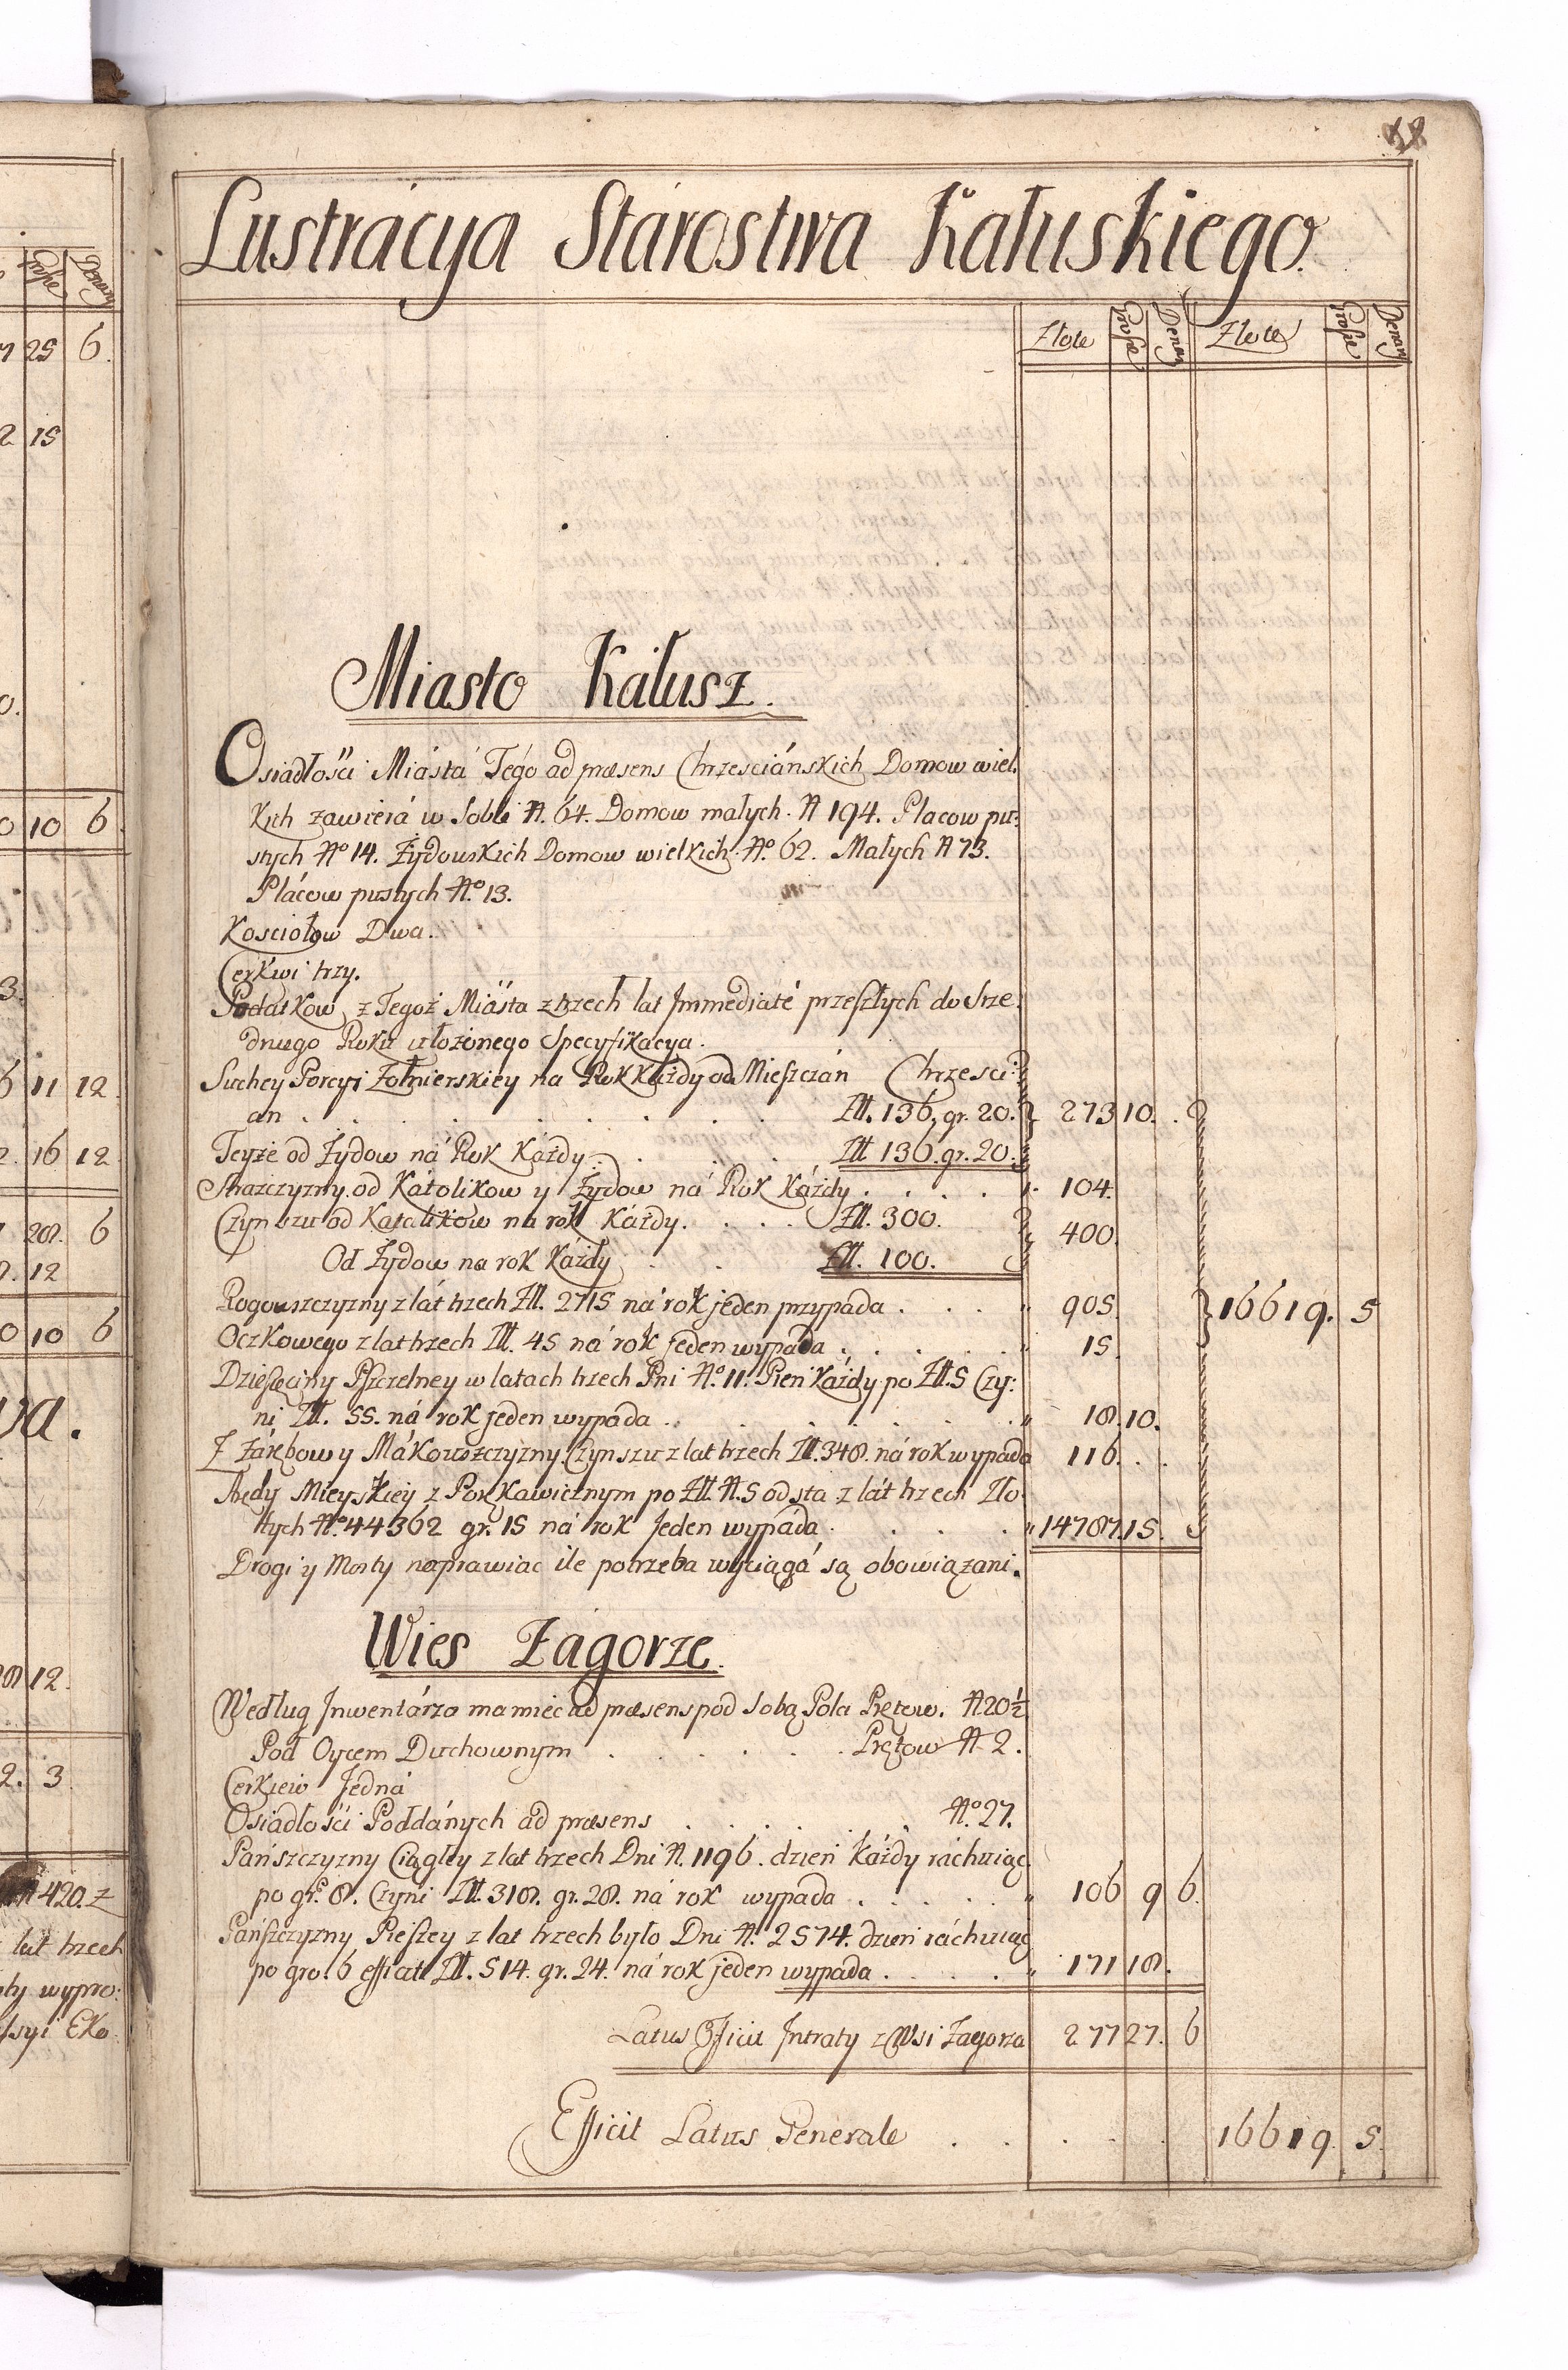 58
Lustrácya Stárostwa Kałuskiego.
Złote Grosze Denary Złote Grosze Denary
Miasto Káłusz.
Osiadłości Miástá Tégo ad præsens Chrzesciánskich Domow wiel:
kich zawierá w Sobie N. 64. Domow małych. N 194. Placow pu:
stych No 14. Żydowskich Domow wielkich No. 62. Małych N 73.
Pláców pustych No. 13.
Kosciołow Dwa.
Cerkwi trzy.
Podatkow z Tegoż Miásta z trzech lat Immediaté przeszłych do Srze:
dniego Roku ułożonego Specyfikacya.
Suchey Porcyi Żołnierskiey na Rok Każdy od Mieszczán Chrzesci:
an . . . . . . . Złł. 136. gr. 20. 273 10.
Teyże od Żydow ná Rok Káżdy . . . Złł 136. gr. 20.
Strażczyzny od Kátolikow y Żydow ná Rok Káżdy . . . . 104.
Czynszu od Katolikow na rok Káżdy. . . . Złł. 300. 400.
Od Żydow na rok Każdy . . Złł. 100.
Rogowszczyzny z lát trzech Złł. 2715 ná rok jeden przypada . . . " 905. 16619. 5
Oczkowego z lat trzech Złł. 45 ná rok jeden wypada . . . . . " 15.
Dziesięciny Pszczelney w latach trzech Pni No. 11. Pień Káżdy po Złł. 5 Czy:
ni Złł. 55. ná rok jeden wypada . . . . . . . " 18. 10.
Z Zárębow y Mákowszczyzny Czynszu z lat trzech Złł. 348. ná rok wypada 116. . .
Aredy Mieyskiey z Porękawicznym po Złł. N. 5 od sta z lát trzech Zło:
tych No 44362 gr. 15 ná rok Jeden wypáda . . . . . " 14787. 15.
Drogi y Mosty naprawiac ile potrzeba wyciągá są obowiązani.
Wies Zagorze.
Według Inwentárza ma miec ad præsens pod Sobą Pola Prętow. N 20½
Pod Oycem Duchownym . . . . . . Prętow N 2.
Cerkiew Jedná
Osiadłości Poddánych ad præsens . . . . . . No. 27.
Pańszczyzny Ciągłey z lat trzech Dni N. 1196. dzień każdy ráchuiąc
po gr. 8. Czyni Złł. 318. gr. 28. ná rok wypada . . . . . " 106 9 6.
Pańszczyzny Pieszey z lat trzech było Dni N. 2574. dzień ráchuiąc
po gro. 6 efficit Złł. 514. gr. 24. ná rok jeden wypada . . . . . " 171 18.
Latus Efficit Intraty z Wsi Zagorza 277 27. 6
Efficit Latus Generale . . . . 16619. 5.